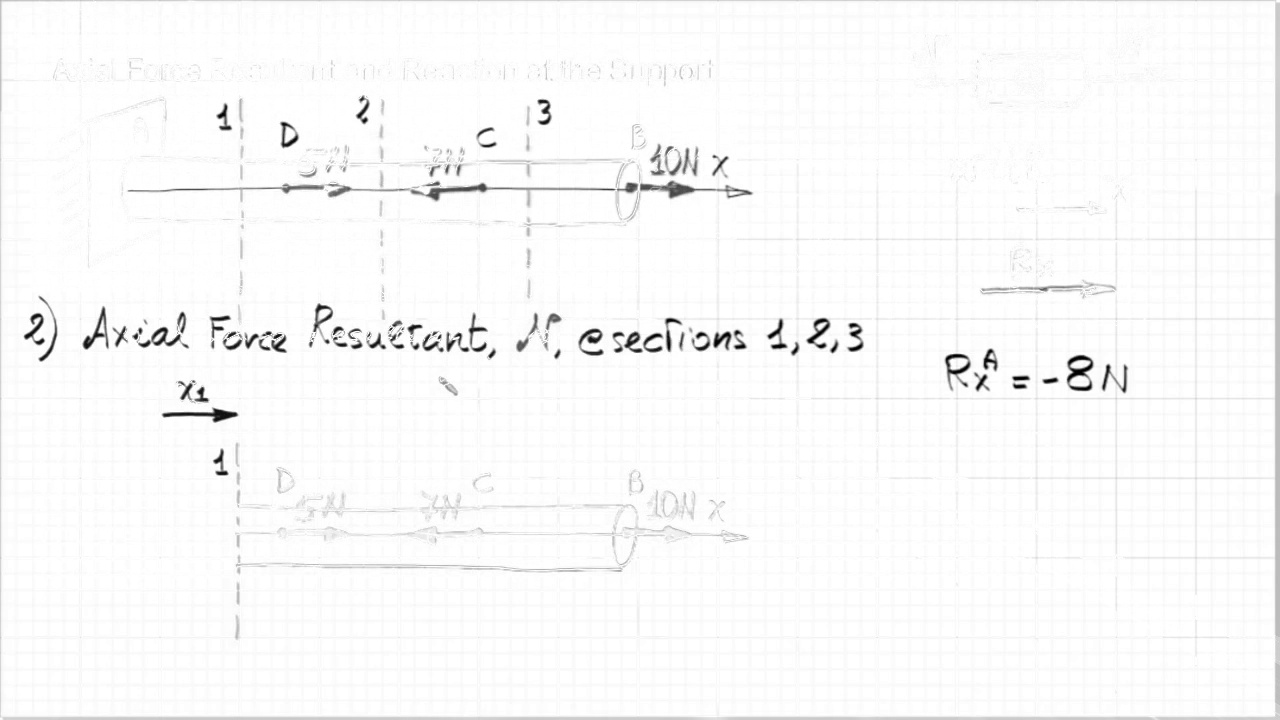 Axial Force Resultant and Reaction at the Support
1 2 3
A D C B
5N 7N 10N x
Rx
2) Axial Force Resultant, N, @ sections 1,2,3
RxA = -8N
x1
1
D C B
5N 7N 10N x